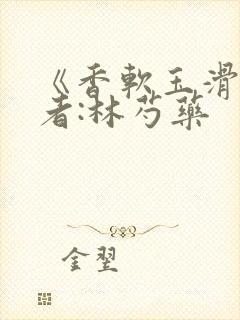 《香軟玉滑
者:林芍藥
金翌